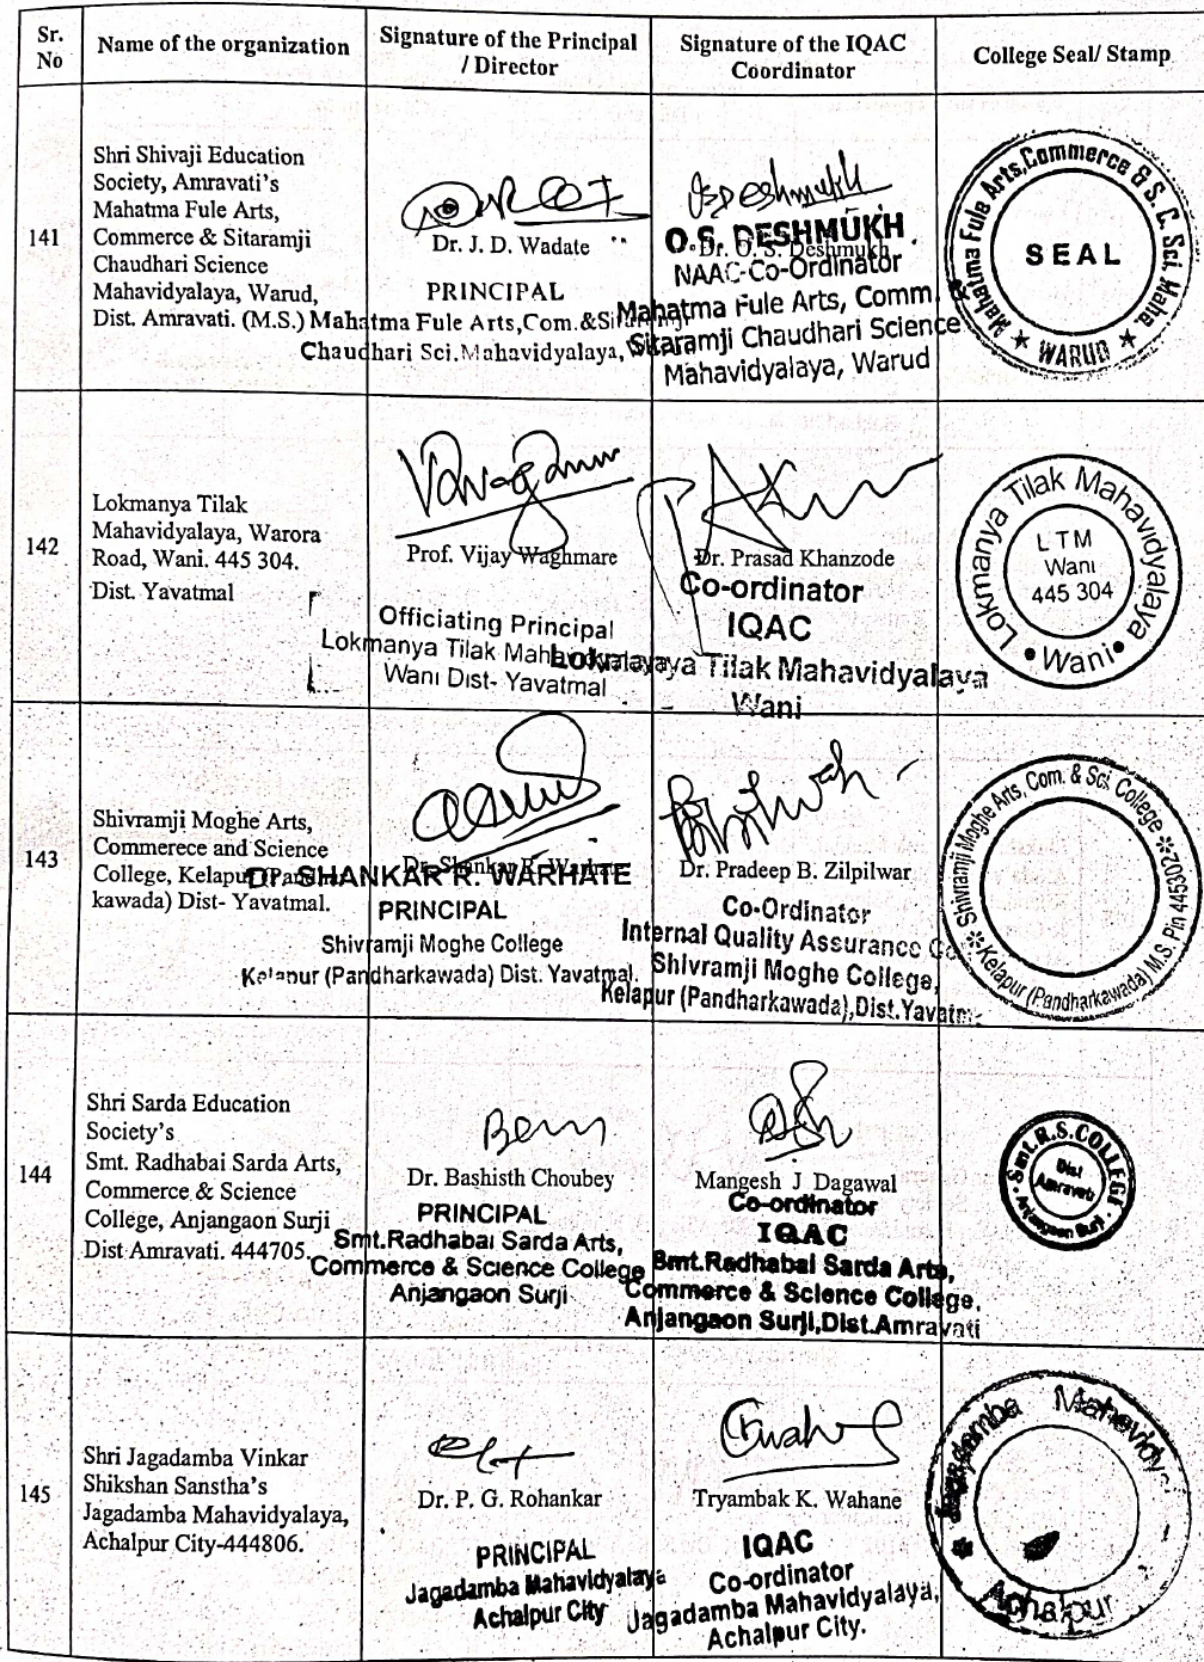 Sr.
No
Name of the organization
Signature of the Principal
/ Director
Signature of the IQAC
Coordinator
College Seal/ Stamp
141
Shri Shivaji Education
Society, Amravati's
Mahatma Fule Arts,
Commerce & Sitaramji
Chaudhari Science
Mahavidyalaya, Warud,
Dist. Amravati. (M.S.)
Dr. J. D. Wadate
PRINCIPAL
Mahatma Fule Arts,Com.&Sitaramji
Chaudhari Sci.Mahavidyalaya,
Deshmukh
O.S. DESHMUKH
Dr. O. S. Deshmukh
NAAC-Co-Ordinator
Mahatma Fule Arts, Comm. &
Sitaramji Chaudhari Science
Mahavidyalaya, Warud
Mahatma Fule Arts,Commerce & S. C. Sci. Maha.
SEAL
WARUD
142
Lokmanya Tilak
Mahavidyalaya, Warora
Road, Wani. 445 304.
Dist. Yavatmal
Prof. Vijay Waghmare
Officiating Principal
Lokmanya Tilak Mahavidyalaya
Wani Dist- Yavatmal
Dr. Prasad Khanzode
Co-ordinator
IQAC
Lokmanya Tilak Mahavidyalaya
Wani
Lokmanya Tilak Mahavidyalaya
LTM
Wani
445 304
Wani
143
Shivramji Moghe Arts,
Commerece and Science
College, Kelapur (Pandhar
kawada) Dist- Yavatmal.
Dr. Shankar R. Warhate
Dr. SHANKAR R. WARHATE
PRINCIPAL
Shivramji Moghe College
Kelapur (Pandharkawada) Dist. Yavatmal.
Dr. Pradeep B. Zilpilwar
Co-Ordinator
Internal Quality Assurance
Shivramji Moghe College,
Kelapur (Pandharkawada),Dist.Yavatm
Shivramji Moghe Arts, Com. & Sci. College
Kelapur (Pandharkawada) M.S. Pin 445302
144
Shri Sarda Education
Society's
Smt. Radhabai Sarda Arts,
Commerce & Science
College, Anjangaon Surji
Dist Amravati. 444705.
Dr. Bashisth Choubey
PRINCIPAL
Smt.Radhabai Sarda Arts,
Commerce & Science College
Anjangaon Surji
Mangesh J Dagawal
Co-ordinator
IQAC
Smt.Radhabai Sarda Arts,
Commerce & Science College,
Anjangaon Surji,Dist.Amravati
Smt.R.S.COLLEGE
Dist
Amravati
Anjangaon Surji
145
Shri Jagadamba Vinkar
Shikshan Sanstha's
Jagadamba Mahavidyalaya,
Achalpur City-444806.
Dr. P. G. Rohankar
PRINCIPAL
Jagadamba Mahavidyalaya
Achalpur City
Tryambak K. Wahane
IQAC
Co-ordinator
Jagadamba Mahavidyalaya,
Achalpur City.
Jagadamba Mahavidy
Achalpur